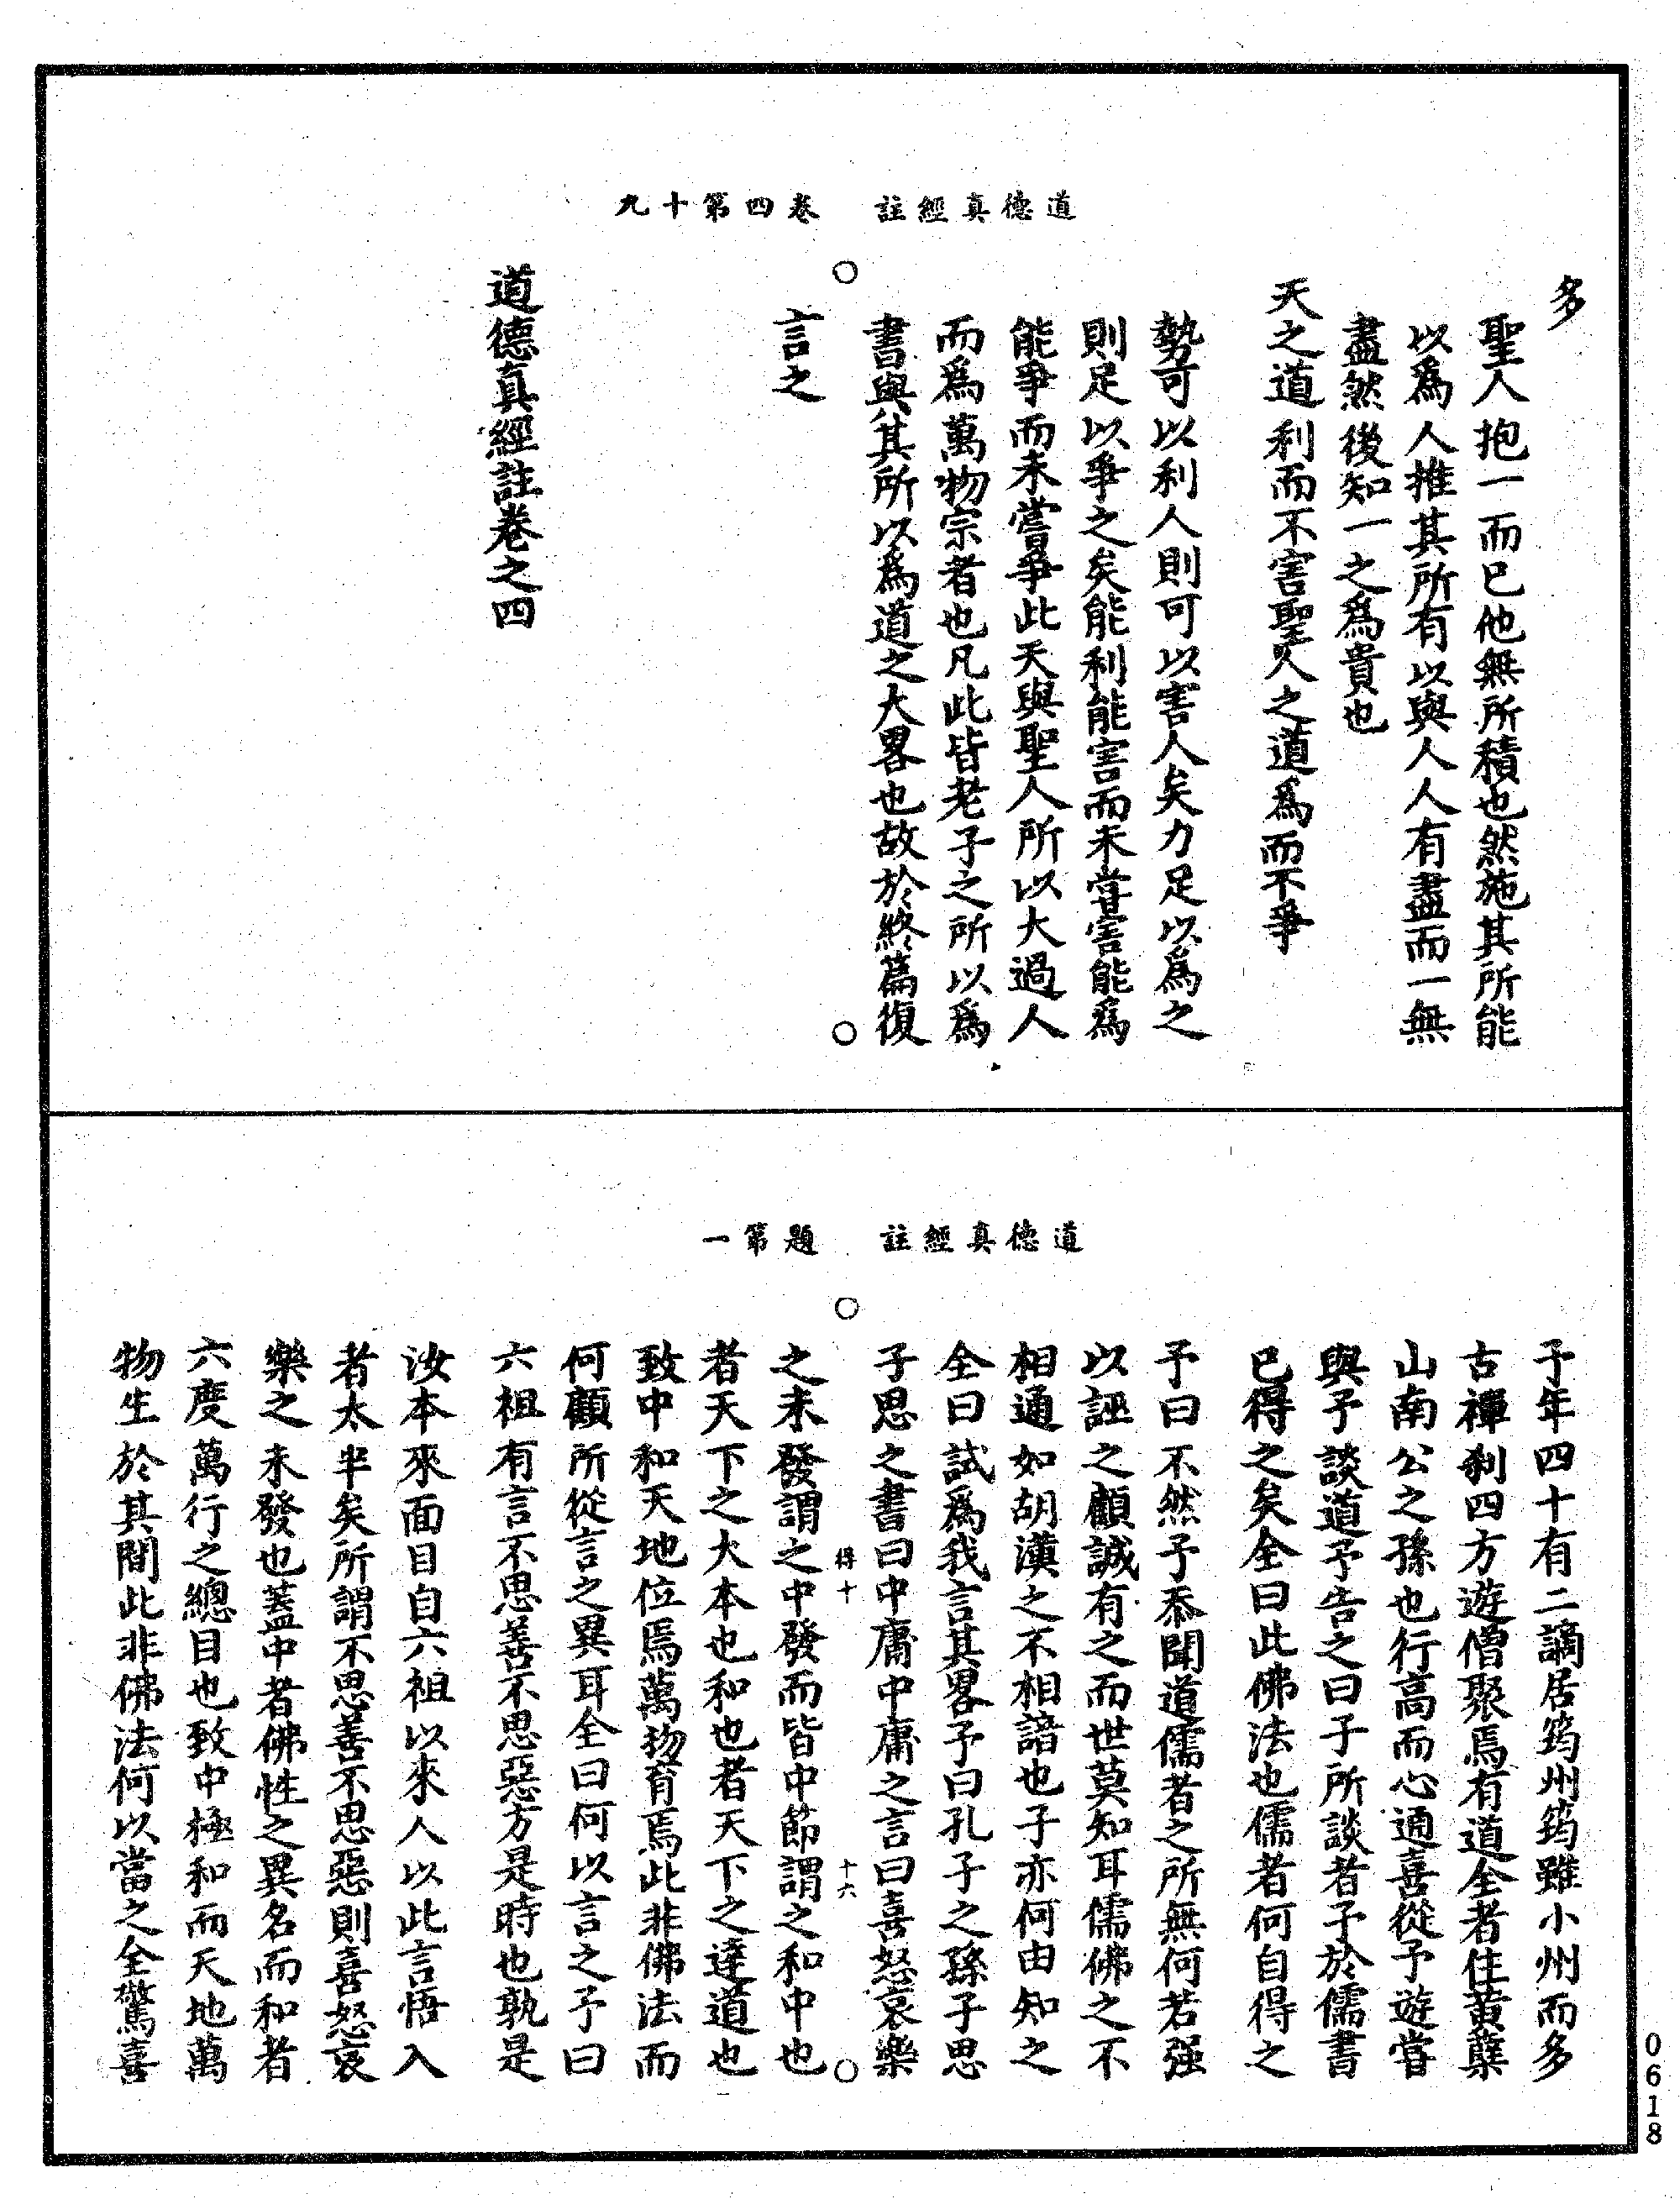 道德真經註　卷四第十九
多
聖人抱一而已他無所積也然施其所能
以爲人推其所有以與人人有盡而一無
盡然後知一之爲貴也
天之道利而不害聖人之道爲而不爭
勢可以利人則可以害人矣力足以爲之
則足以爭之矣能利能害而未嘗害能爲
能爭而未嘗爭此天與聖人所以大過人
而爲萬物宗者也凡此皆老子之所以爲
書與其所以爲道之大畧也故於終篇復
言之
道德真經註卷之四
道德真經註　題第一
予年四十有二謫居筠州筠雖小州而多
古禪刹四方遊僧聚焉有道全者住黃蘗
山南公之孫也行高而心通喜從予遊嘗
與予談道予告之曰子所談者予於儒書
已得之矣全曰此佛法也儒者何自得之
予曰不然予忝聞道儒者之所無何若强
以誣之顧誠有之而世莫知耳儒佛之不
相通如胡漢之不相諳也子亦何由知之
全曰試爲我言其畧予曰孔子之孫子思
子思之書曰中庸中庸之言曰喜怒哀樂
得十　十六
之未發謂之中發而皆中節謂之和中也
者天下之大本也和也者天下之達道也
致中和天地位焉萬物育焉此非佛法而
何顧所從言之異耳全曰何以言之予曰
六祖有言不思善不思惡方是時也孰是
汝本來面目自六祖以來人以此言悟入
者太半矣所謂不思善不思惡則喜怒哀
樂之未發也蓋中者佛性之異名而和者
六度萬行之總目也致中極和而天地萬
物生於其間此非佛法何以當之全驚喜
0618